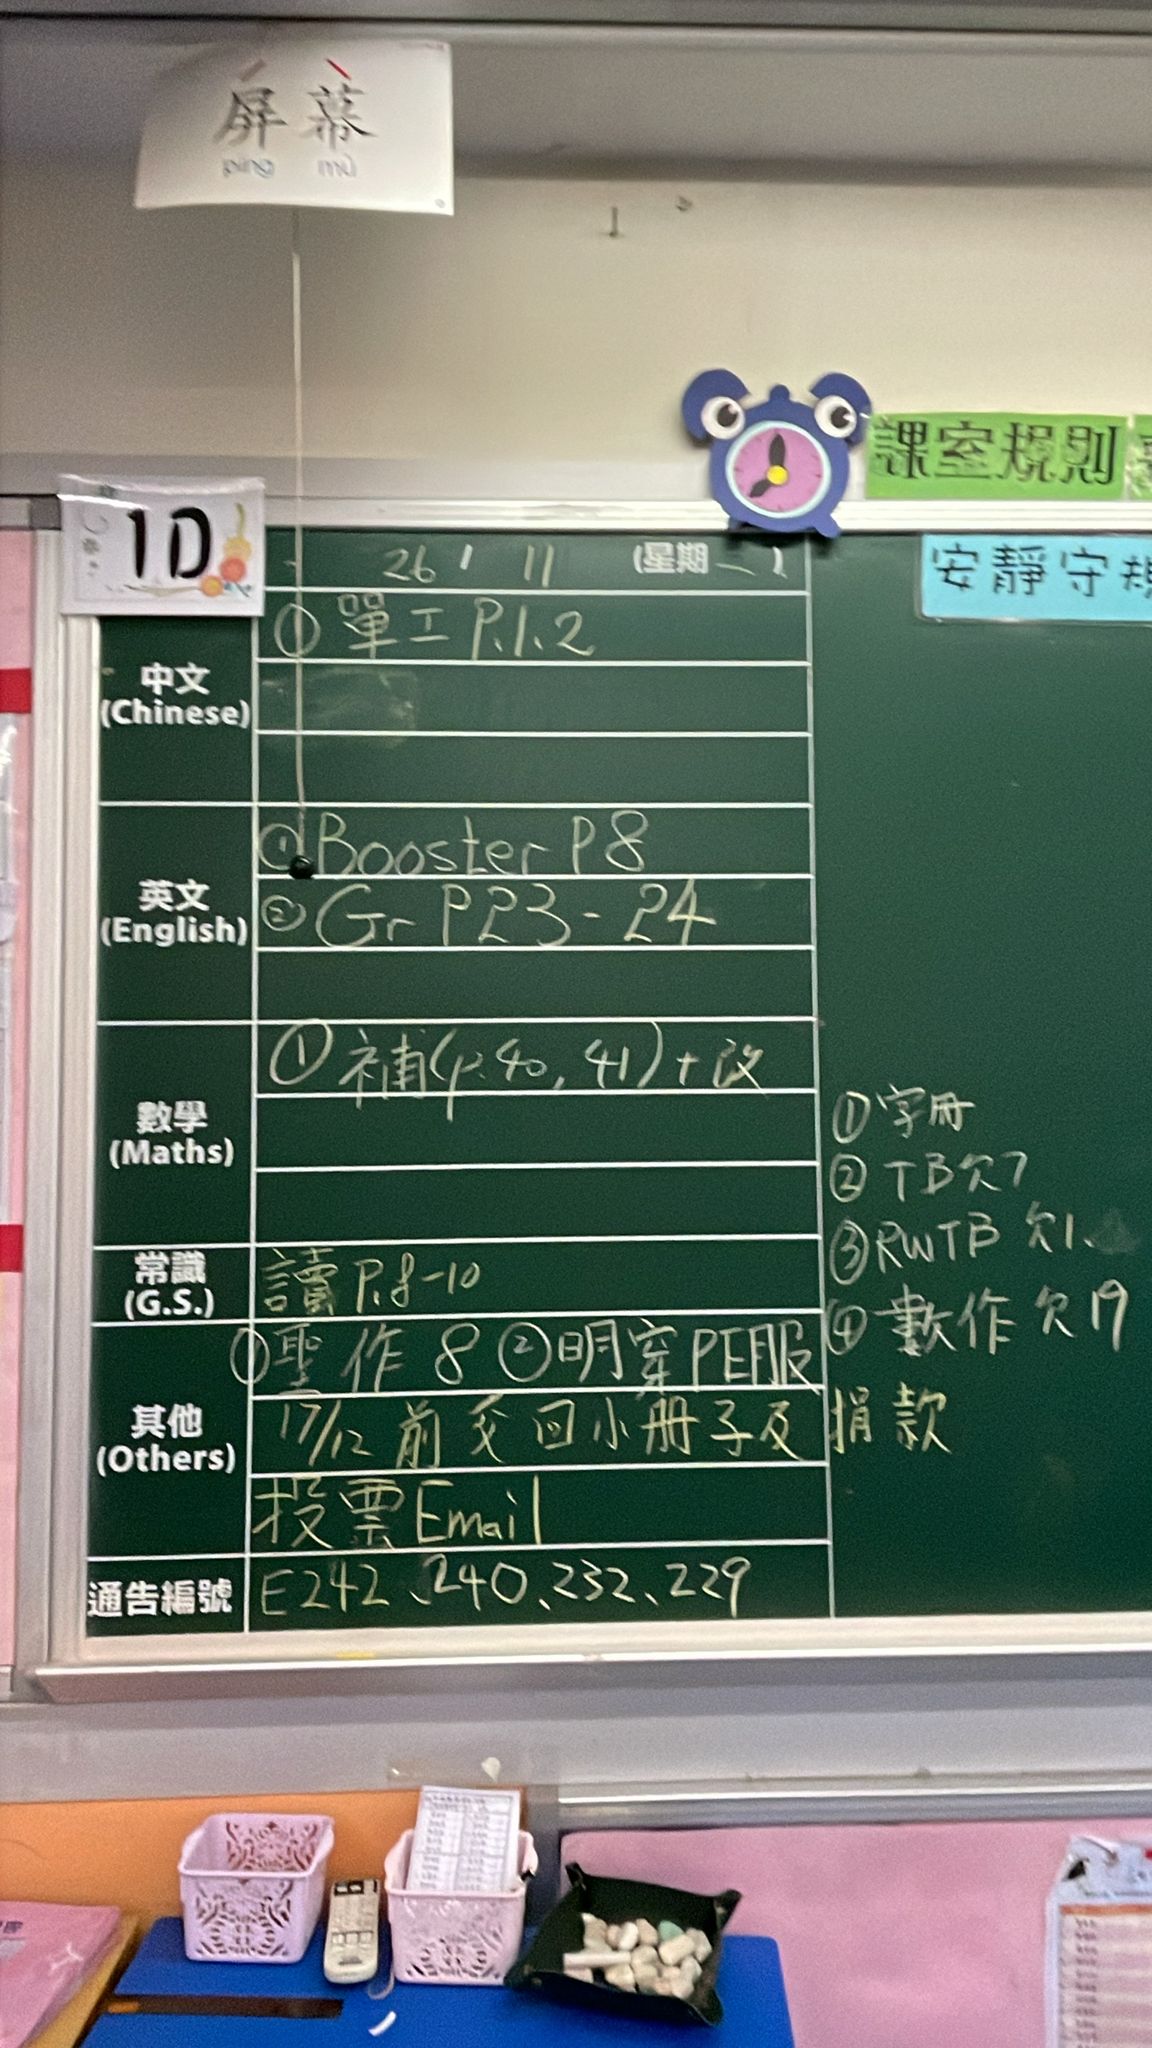 屏幕
píng mù
課室規則
安靜守規
1D
26 / 11 (星期二)
中文
(Chinese)
① 單工 P.1.2
英文
(English)
① Booster P8
② Gr P23-24
數學
(Maths)
① 補(p.40, 41)+改
常識
(G.S.)
讀 P.8-10
其他
(Others)
①聖作 8 ②明穿PE服
17/12 前交回小冊子及捐款
投票Email
通告編號
E242、240、232、229
① 字冊
② TB欠7
③ RWTB 欠1
④ 數作欠19